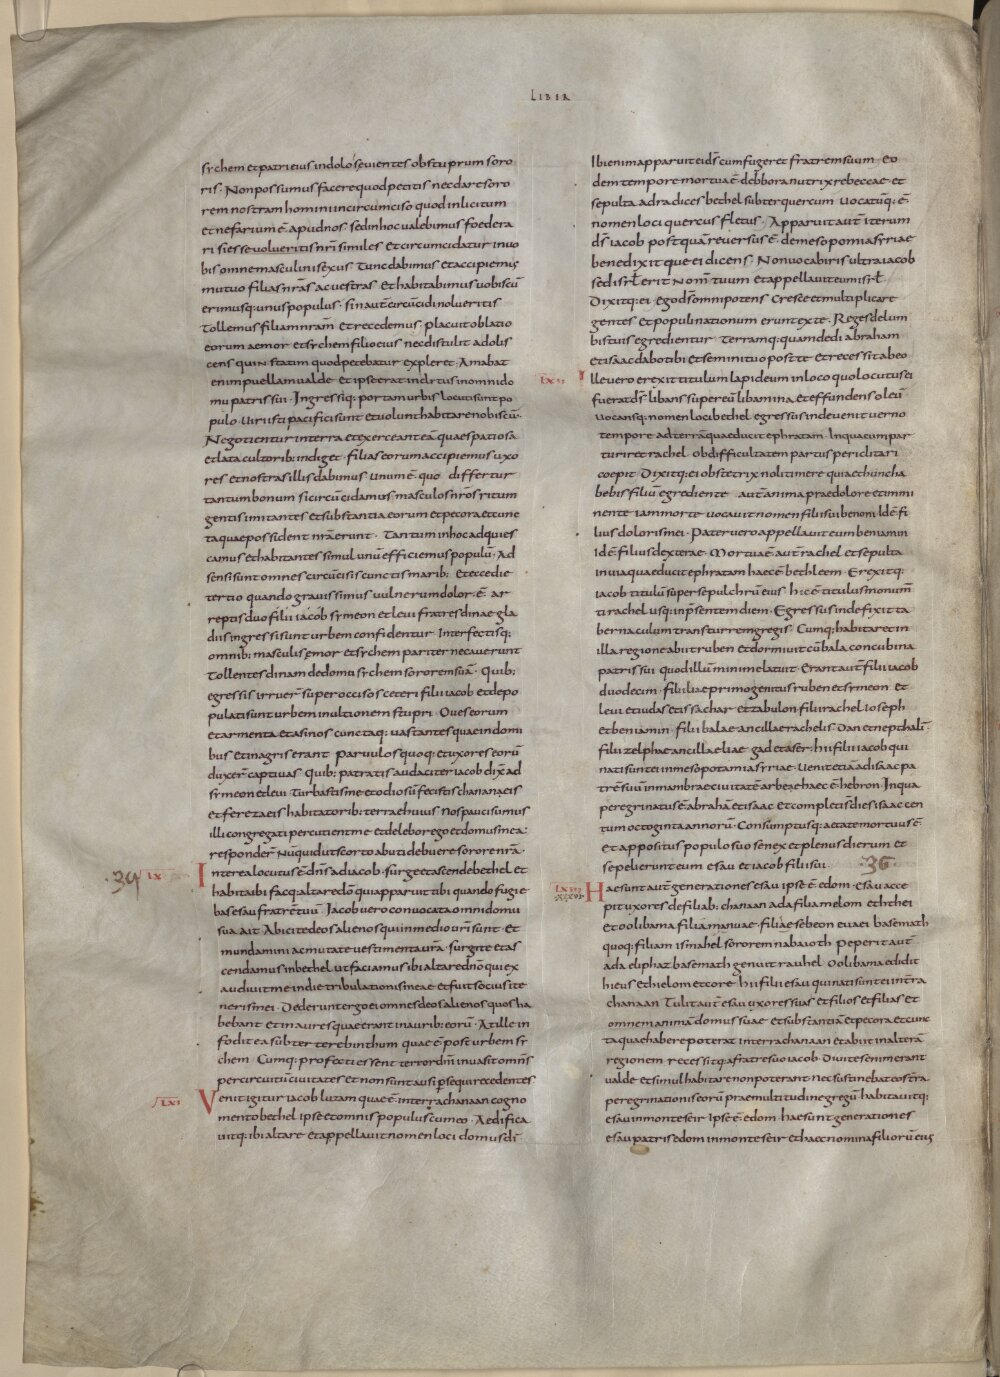 LIBER
sychem et patri eius in dolo sevientes ob stuprum soro
ris · Non possumus facere quod petitis nec dare soro
rem nostram homini incircumciso quod inlicitum
et nefarium ē apud nos · sed in hoc valebimus foedera
ri si esse volueritis nr̄i similes et circumcidatur in vo
bis omne masculini sexus · Tunc dabimus et accipiemus
mutuo filias nr̄as ac vestras et habitabimus vobiscū
erimusq; unus populus · sin aut̄ circūcidi nolueritis
tollemus filiam nr̄am et recedemus · placuit oblatio
eorum aemor et sychem filio eius nec distulit adolis
cens quin statim quod petebatur expleret · Amabat
enim puellam valde et ipse erat inclitus in omni do
mu patris sui · Ingressiq; portam urbis locuti sunt po
pulo · viri isti pacifici sunt et volunt habitare nobiscū ·
Negotientur in terra et exerceant eā quae spatiosa
et lata cultorib; indiget · filias eorum accipiemus uxo
res et nostras illis dabimus · unum ē quo differtur
tantum bonum si circūcidamus masculos nr̄os ritum
gentis imitantes et substantia eorum et pecora et cunc
ta quae possident nr̄a erunt · Tantum in hoc adquies
camus et habitantes simul unū efficiemus populū · Ad
sensi sunt omnes circūcisis cunctis marib; et ecce die
tertio quando gravissimus vulnerum dolor ē ar
reptis duo filii iacob symeon et levi fratres dinae gla
diis ingressi sunt urbem confidentur interfectisq;
omnib; masculis emor et sychem pariter necaverunt
tollentes dinam de domu sychem sororem suā · Quib;
egressis irruer̄ super occisos ceteri filii iacob et depo
pulati sunt urbem in ultionem stupri · Oves eorum
et armenta et asinos cunctaq; vastantes quae in domi
bus et in agris erant parvulos quoq; et uxores eorū
duxer̄ captivas · Quib; patratis audaciter iacob dix̄ ad
symeon et levi · Turbastis me et odiosū fecistis chananaeis
et ferezaeis habitatorib; terrae huius · Nos pauci sumus
illi congregati percutient me et delebor ego et domus mea ·
responder̄ Nūquid ut scorto abuti debuere sorore nr̄a ·
39 LX Interea locutus ē dn̄s ad iacob · surge et ascende bethel et
habita ibi facq; altare dō qui apparuit tibi quando fugie
bas esau fratrē tuū Iacob vero convocata omni domu
sua ait Abicite deos alienos qui in medio vr̄i sunt · Et
mundamini ac mutate vestimenta vr̄a · surgite et as
cendamus in bethel ut faciamus ibi altare dn̄o qui ex
audivit me in die tribulationis meae et fuit socius iti
neris mei · Dederunt ergo ei omnes deos alienos quos ha
bebant et inaures quae erant in aurib; eorū · At ille in
fodit ea subter terebinthum quae ē post urbem sy
chem Cumq; profecti essent terror dn̄i invasit omn̄s
per circuitū civitates et non sunt ausi persequi recedentes
LXI Venit igitur iacob luzam quae ē in terra chanaan cogno
mento bethel ipse et omnis populus cum eo · Aedifica
vitq; ibi altare et appellavit nomen loci domus dī
Ibi enim apparuit ei ds̄ cum fugeret fratrem suum · Eo
dem tempore mortua ē debbora nutrix rebeccae et
sepulta ad radices bethel subter quercum vocatūq; ē
nomen loci quercus fletus · Apparuit aut̄ iterum
ds̄ iacob postquā reversus ē de mesopomia syriae
benedixitque ei dicens · Non vocabiris ultra iacob
sed isrl̄ erit nom̄ tuum et appellavit eum isrl̄
Dixitq; ei · ego ds̄ omnipotens Cresce et multiplicare
gentes et populi nationum erunt ex te · Reges de lum
bis tuis egredientur Terramq; quam dedi abraham
et isaac dabo tibi et semini tuo post te et recessit ab eo
LXII Ille vero erexit titulum lapideum in loco quo locutus ei
fuerat ds̄ libans super eū libamina et effundens oleū
vocansq; nomen loci bethel egressus inde venit verno
tempore ad terrā quae ducit ephratam · In qua cum par
turiret rachel ob difficultatem partus periclitari
coepit Dixitq; ei obstetrix noli timere quia et hunc ha
bebis filiū egrediente aut̄ anima prae dolore et immi
nente iam morte vocavit nomen filii sui benoni Id ē fi
lius doloris mei · Pater vero appellavit eum beniamin
Id ē filius dexterae · Mortua ē aut̄ rachel et sepulta
in via quae ducit ephratan haec ē bethleem · Erexitq;
iacob titulū super sepulchrū eius hic ē titulus monum̄
ti rachel usq; in p̄sentem diem · Egressus inde fixit ta
bernaculum trans turrem gregis · Cumq; habitaret in
illa regione abiit ruben et dormivit cū bala concubina
patris sui quod illum minime latuit · Erant aut̄ filii iacob
duodecim · filii liae primogenitus ruben et symeon et
levi et iudas et issachar et zabulon filii rachel Ioseph
et beniamin · filii balae ancillae rachelis · Dan et nepthali ·
filii zelphae ancillae liae gad et aser · hii filii iacob qui
nati sunt ei in mesopotamia syriae · Venit etiā ad isaac pa
trē suū in mambrae civitatē arbeae haec ē hebron In qua
peregrinatus ē abrahā et isaac Et completi s̄ dies isaac cen
tum octoginta annorū · Consumptusq; aetate mortuus ē
et appositus populo suo senex et plenus dierum et
sepelierunt eum esau et iacob filii sui · 36
LXIII Hae sunt aut̄ generationes esau ipse ē edom · esau acce
pit uxores de filiab; chanaan ada filia melom ethei
et oolibama filiā manvae · filiae sebeon evaei basemath
quoq; filiam ismahel sororem nabaioth Peperit aut̄
ada eliphaz basemath genuit rauhel Oolibama edidit
hieus et hielom et core · hii filii esau qui nati sunt ei in tr̄ra
chanaan Tulit aut̄ esau uxores suas et filios et filias et
omnem animā domus suae et substantiā et pecora et cunc
ta quae habere poterat in terra chanaan et abiit in alterā
regionem recessitq; a fratre suo iacob Divites enim erant
valde et simul habitare non poterant nec sustinebat eos tr̄ra
peregrinationis eorū prae multitudine gregū habitavitq;
esau in monte seir Ipse ē edom · hae sunt generationes
esau patris edom in monte seir et haec nomina filiorū eius